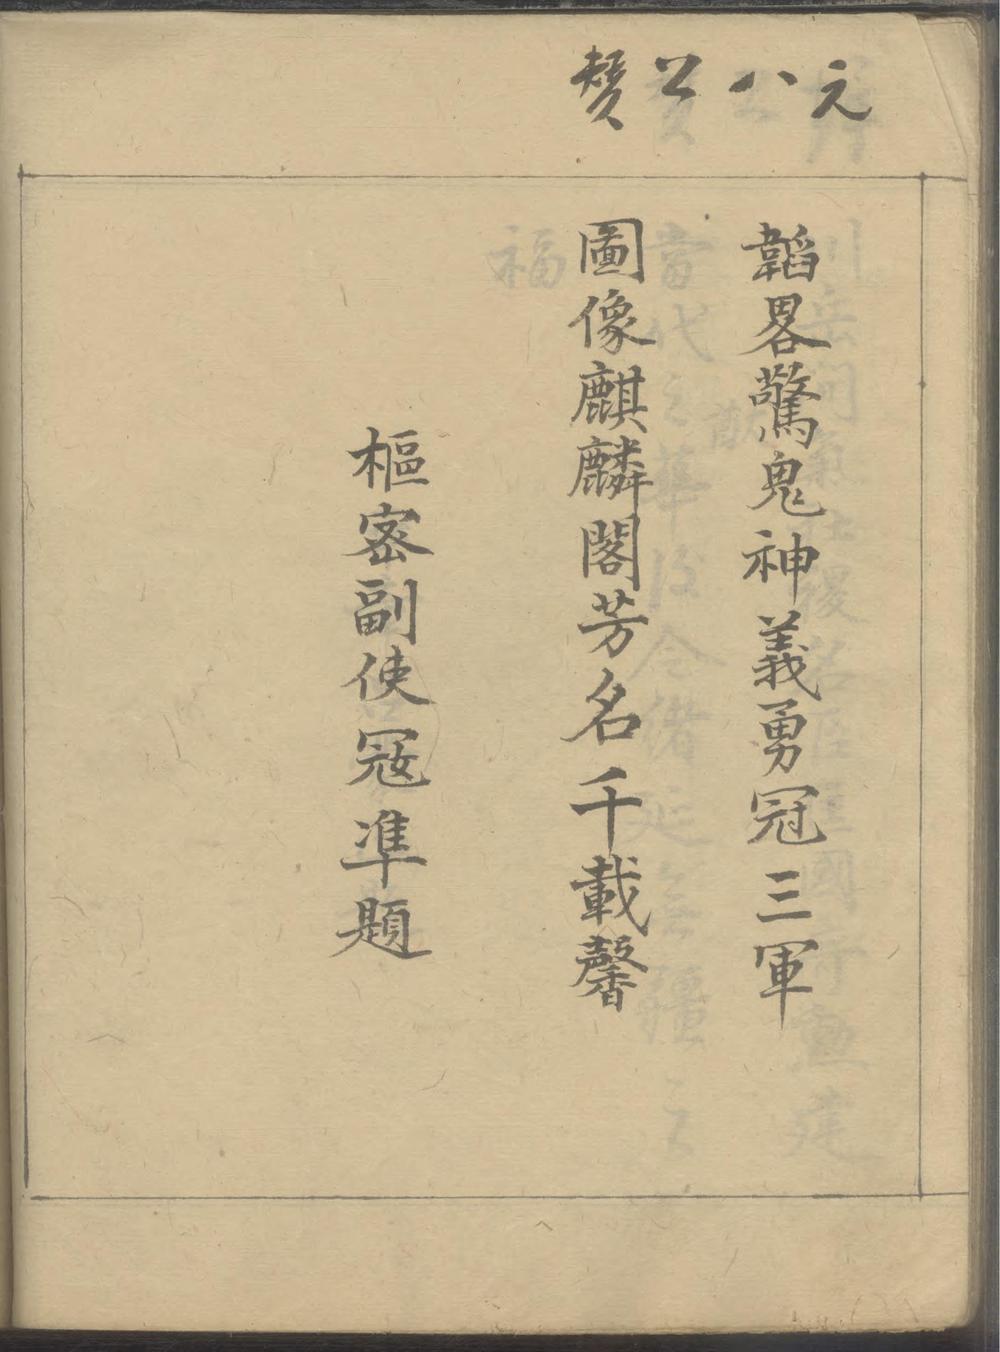 元八公賛
韜畧驚鬼神義勇冠三軍
圖像麒麟閣芳名千載馨
樞密副使冦凖題